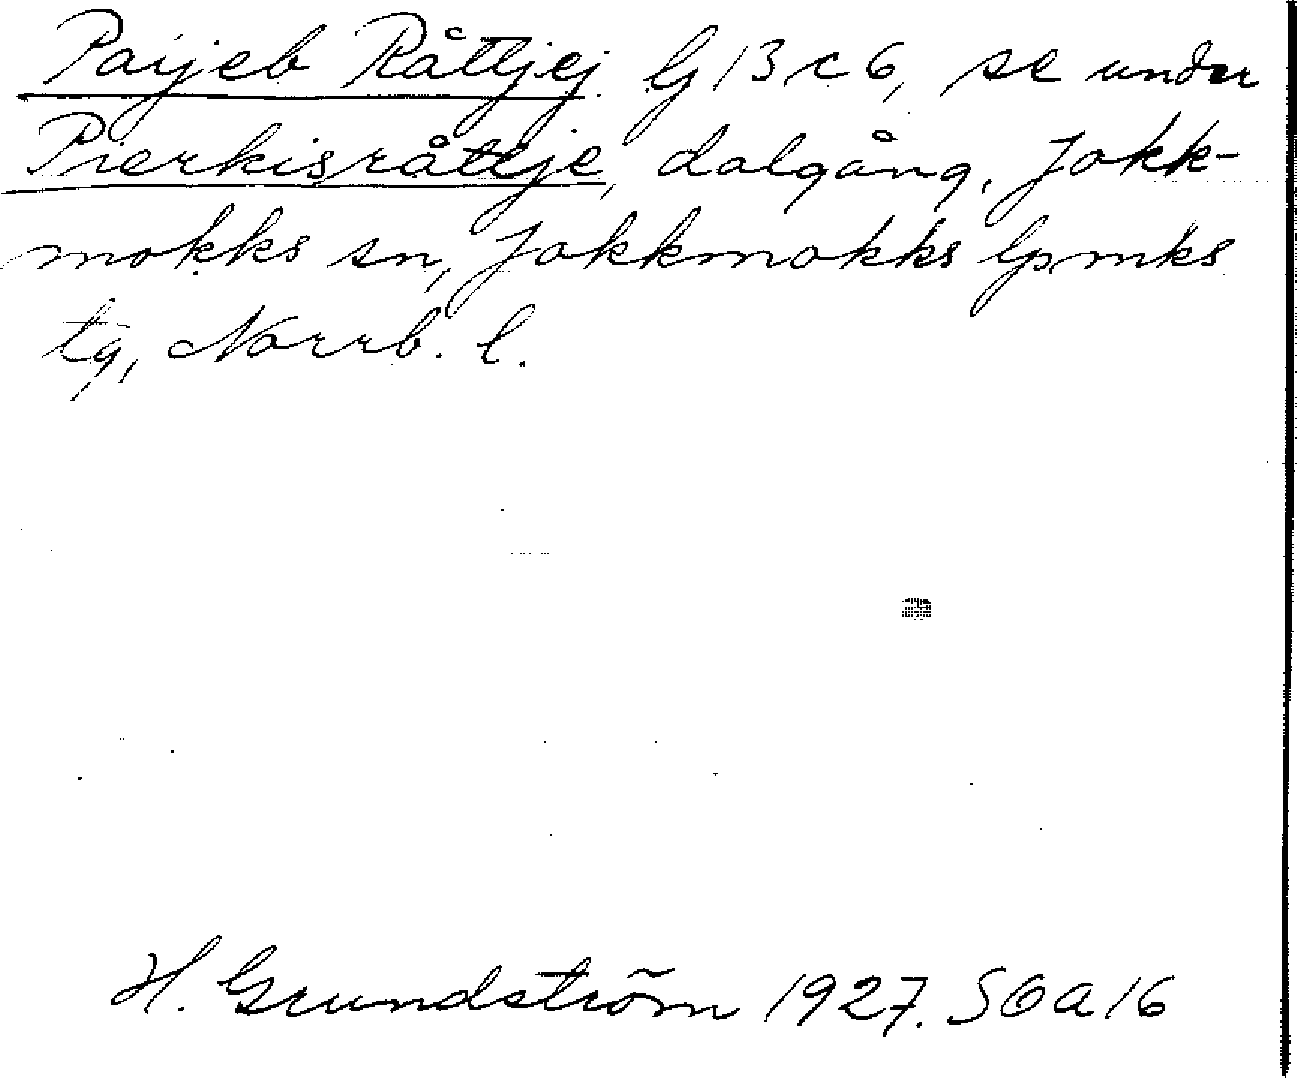 Paijeb Råttjej G 13 c 6, se under
Pierkisråttje, dalgång, Jokk-
mokks sn, Jokkmokks lpmks
tg, Norrb. l.
H. Grundström 1927. SOA 16